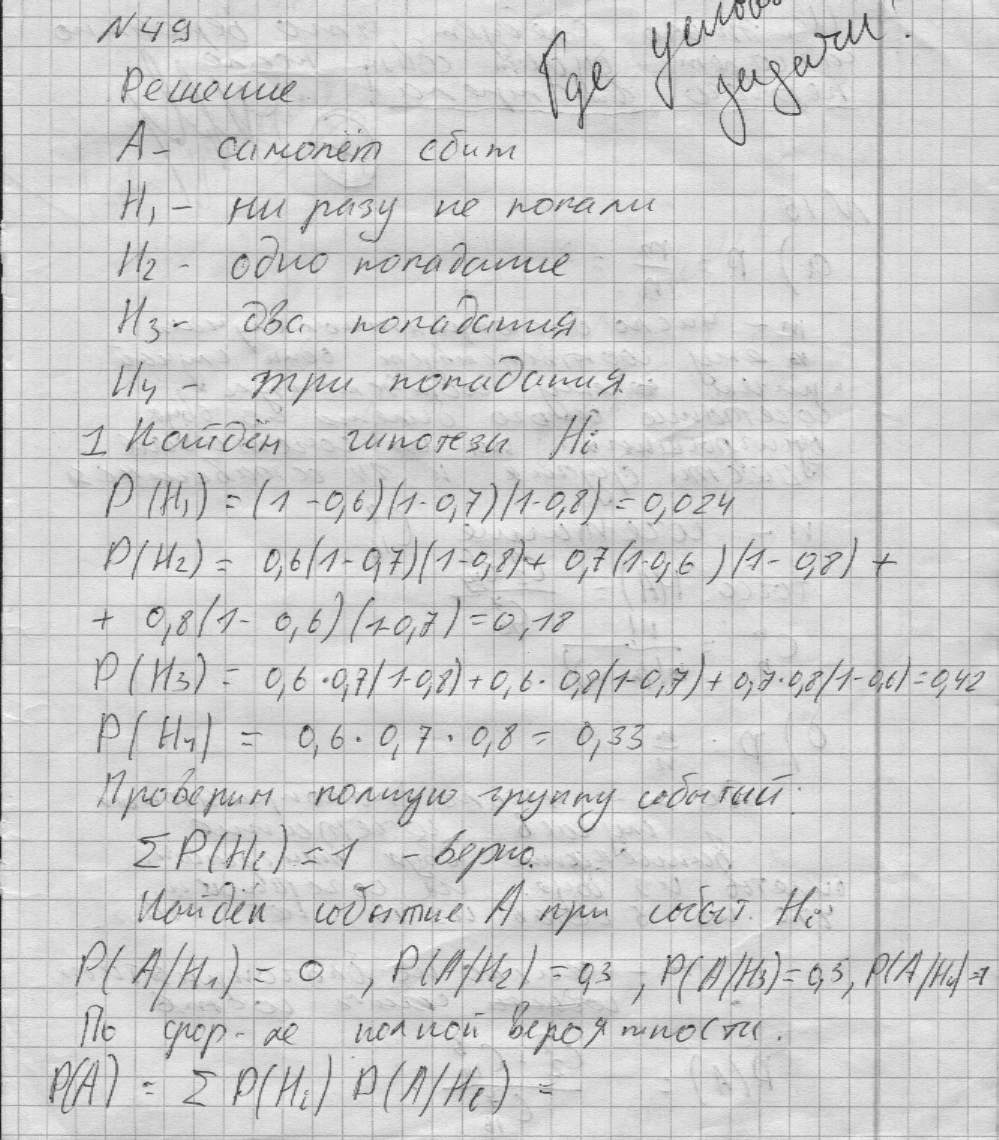 N 49
Где условие
задачи?
Решение
A - самолёт сбит
H₁ - ни разу не попали
H₂ - одно попадание
H₃ - два попадания
H₄ - три попадания
1 Найдём гипотезы Hi
P(H₁) = (1-0,6)(1-0,7)(1-0,8) = 0,024
P(H₂) = 0,6(1-0,7)(1-0,8)+ 0,7(1-0,6)(1-0,8) +
+ 0,8(1-0,6)(1-0,7)=0,18
P(H₃) = 0,6·0,7(1-0,8)+0,6·0,8(1-0,7)+0,7·0,8(1-0,6)=0,42
P(H₄) = 0,6·0,7·0,8 = 0,33
Проверим полную группу событый.
ΣP(Hi)=1 - верно.
Найдём событие A при событ. Hi
P(A/H₁) = 0, P(A/H₂) = 0,3, P(A/H₃)=0,5, P(A/H₄)=1
По фор-ле полной вероятности.
P(A) = Σ P(Hi) P(A/Hi) =